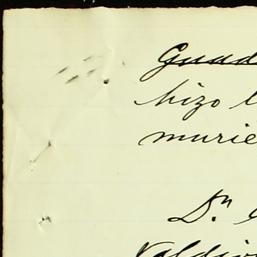 Guad
hizo l
murie
Dn
Valdiv